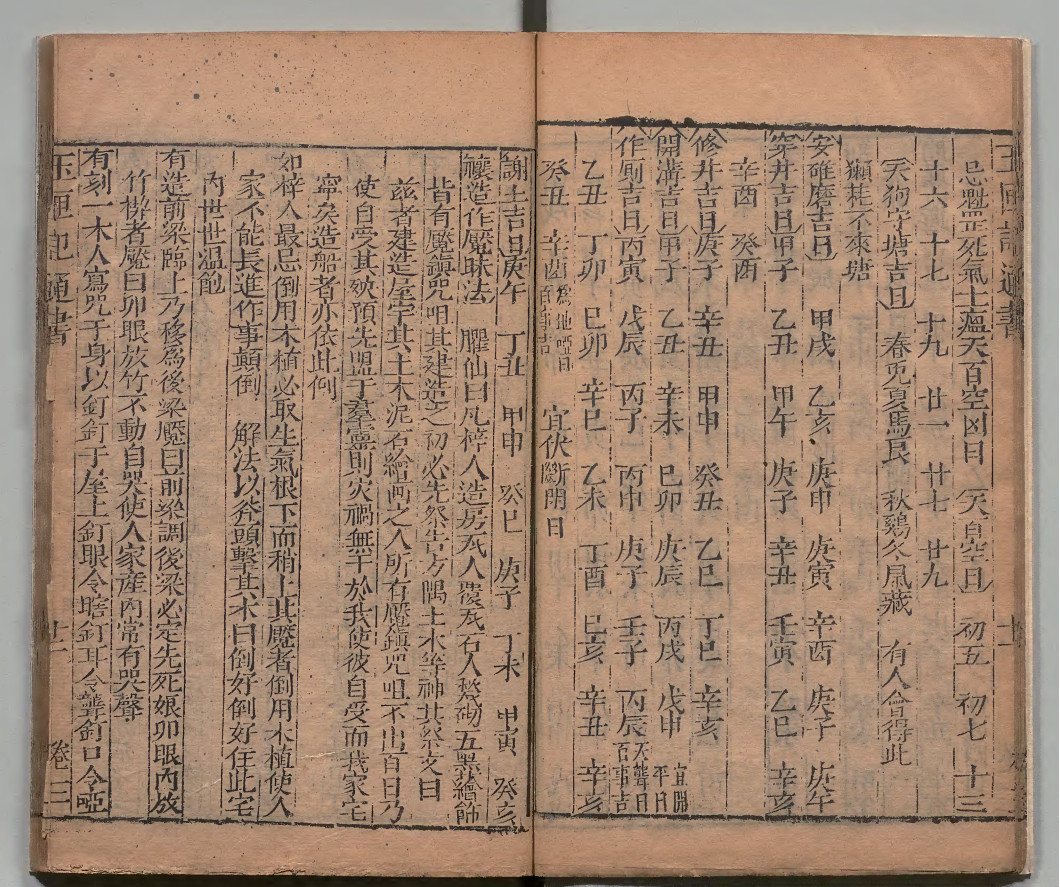 玉匣記通書
忌魁罡死氣土瘟天百空凶日 天百空日 初五 初七 十三
十六 十七 十九 廿一 廿七 廿九
天狗守塘吉日 春兕夏馬良 秋鷄冬鼠藏 有人會得此
獺耗不來塘
安碓磨吉日 甲戌 乙亥 庚申 庚寅 辛酉 庚子 庚午
穿井吉日甲子 乙丑 甲午 庚子 辛丑 壬寅 乙巳 辛亥
辛酉 癸酉
修井吉日庚子 辛丑 甲申 癸丑 乙巳 丁巳 辛亥
開溝吉日甲子 乙丑 辛未 己卯 庚辰 丙戌 戊申 宜開平日
作厠吉日丙寅 戊辰 丙子 丙申 庚子 壬子 丙辰 天聾日百事吉
乙丑 丁卯 己卯 辛巳 乙未 丁酉 己亥 辛丑 辛亥
癸丑 辛酉 爲地啞日百事吉 宜伏斷閉日
謝土吉日庚午 丁丑 甲申 癸巳 庚子 丁未 甲寅 癸亥
禳造作魘昧法 臞仙曰凡梓人造房瓦人覆瓦石人甃砌五墨繪飾
皆有魘鎮咒咀其建造之初必先祭告方隅土木等神其祭文曰
茲者建造屋宇其土木泥石繪画之人所有魘鎮咒咀不出百日乃
使自受其殃預先盟于羣靈則災禍無干於我使彼自受而我家宅
寧矣造船者亦依此例
如梓人最忌倒用木植必取生氣根下而稍上其魘者倒用木植使人
家不能長進作事顛倒 解法以斧頭擊其木曰倒好倒好住此宅
內世世温飽
有造前梁臨上乃移爲後梁魘曰前梁調後梁必定先死娘卯眼內放
竹楔者魘曰卯眼放竹不動自哭使人家產內常有哭聲
有刻一木人寫咒于身以釘釘于屋上釘眼令瞎釘耳令聾釘口令啞
玉匣記通書 十一 卷二